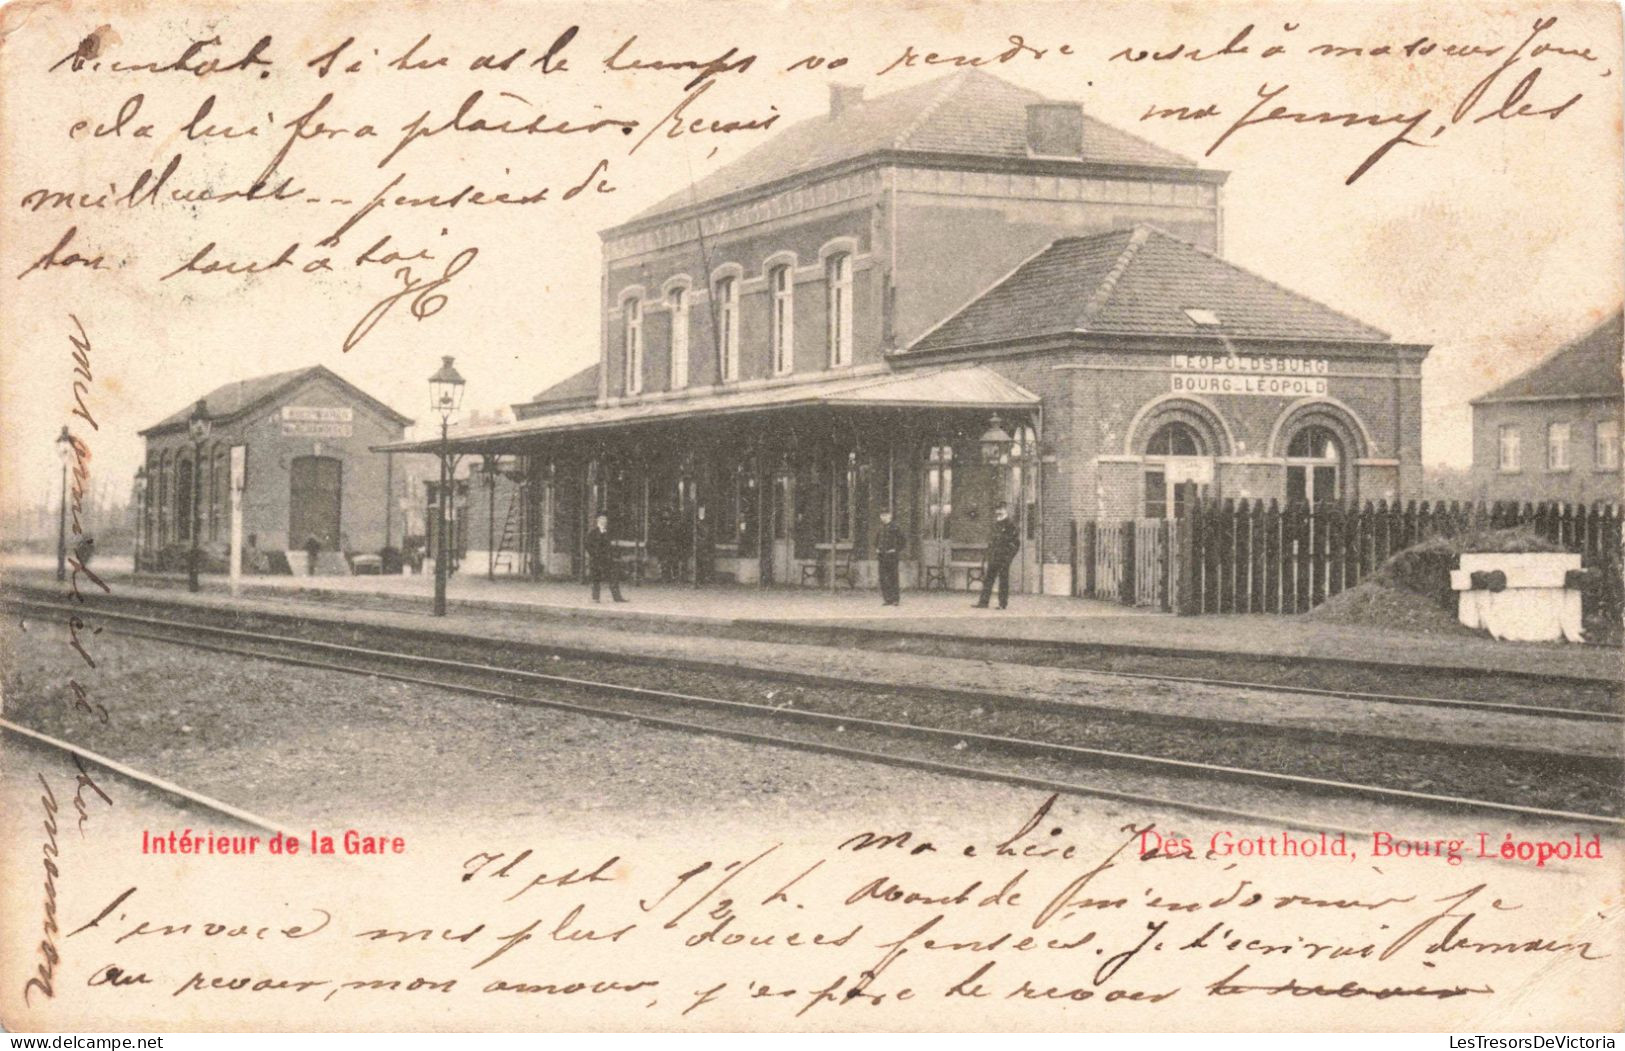 ma chère Jane,
Il est 9 1/2 h. Avant de m'endormir je
t'envoie mes plus douces pensées. Je t'écrirai demain
au revoir, mon amour, j'espère te revoir te revoir
bientôt. Si tu as le temps va rendre visite à ma sœur Jane,
cela lui fera plaisir. Reçois ma Jenny, les
meilleures pensées de
ton tout à toi
JE
mes amitiés à ta
maman
LEOPOLDSBURG
BOURG-LÉOPOLD
Intérieur de la Gare
Dés Gotthold, Bourg-Léopold
© delcampe.net
LesTresorsDeVictoria